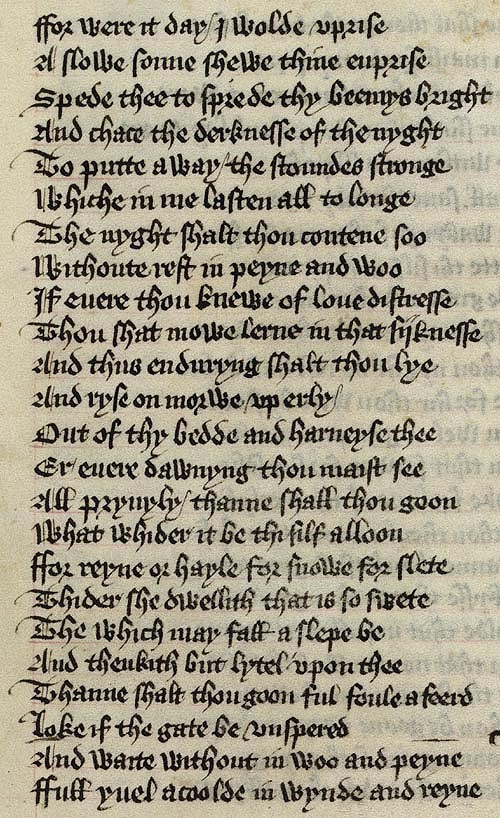 ffor were it day / J wolde vprise
A slowe sonne shewe thine enprise
Spede thee to sprede thy beemys bright
And chace the derknesse of the nyght
To putte away / the stoundes stronge
Whiche in me lasten all to longe
The nyght shalt thou contene soo
Withoute rest in peyne and woo
If euere thou knewe of loue distresse
Thou shat mowe lerne in that sijknesse
And thus enduryng shalt thou lye
And ryse on morwe / vp erly /
Out of thy bedde and harneyse thee
Er euere dawnyng thou maist see
All pryuyly / thanne shall thou goon
What whider it be thi silf alloon
ffor reyne or hayle for snowe for slete
Thider she dwellith that is so swete
The which may fall a slepe be
And thenkith but lytel vpon thee
Thanne shalt thou goon ful foule a feerd
Loke if the gate be vnspered
And waite without in woo and peyne
ffull yuel acoolde in wynde and reyne